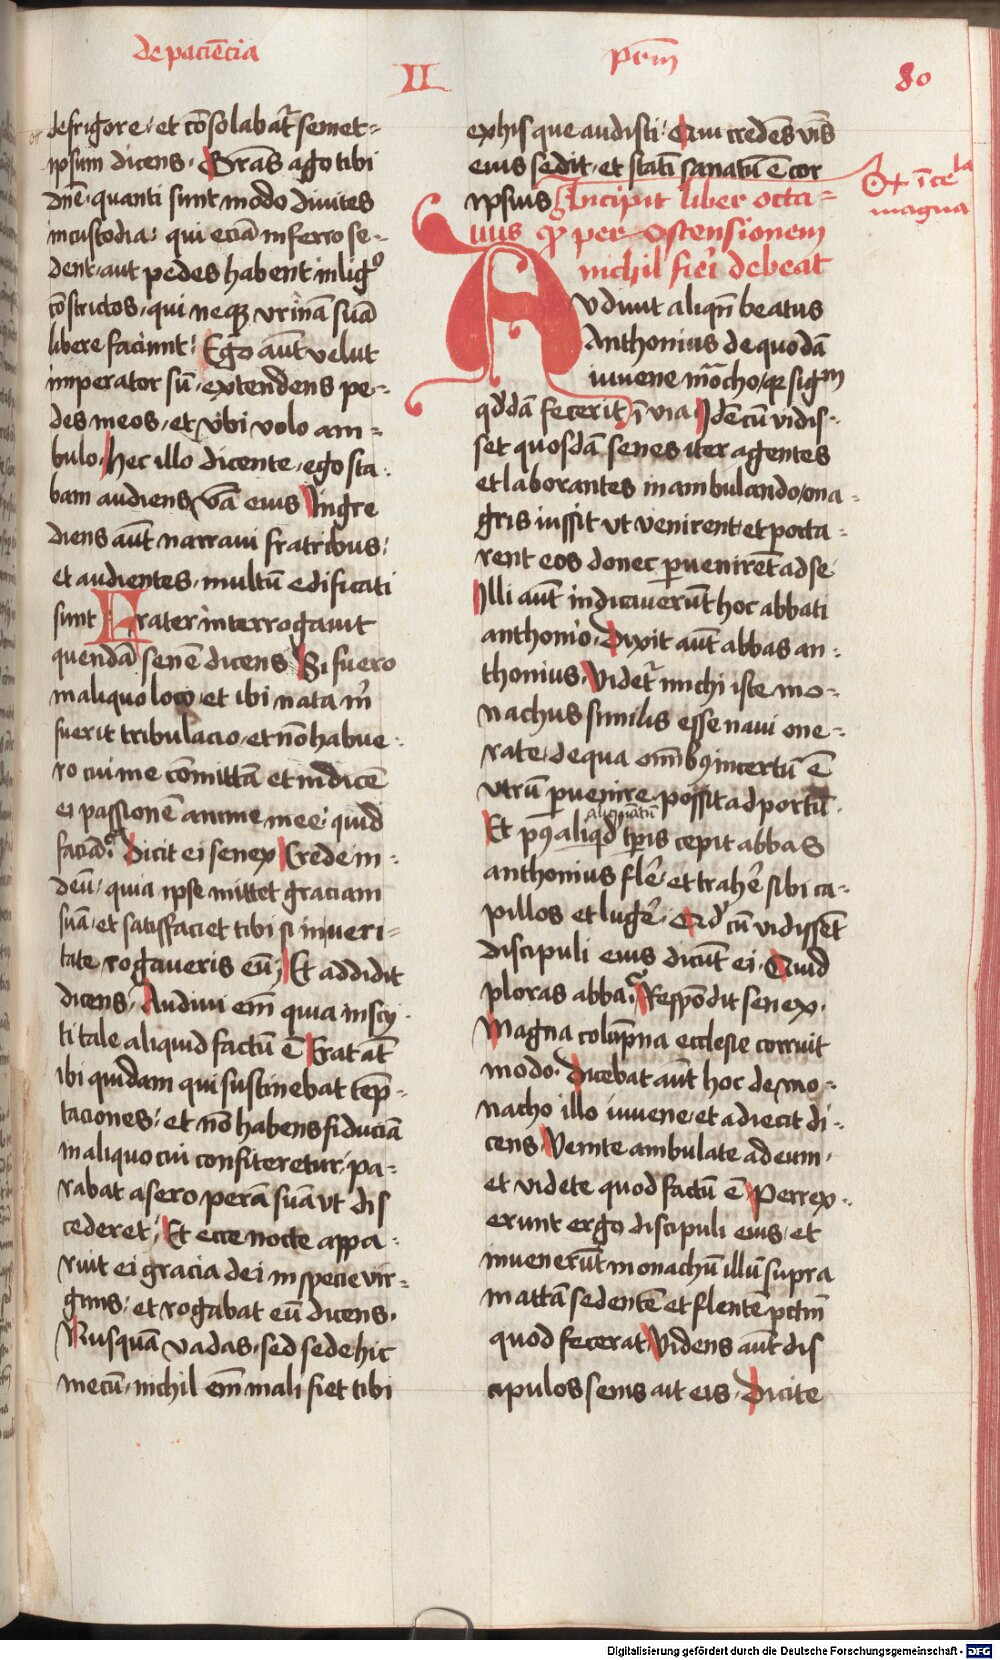 de pacie͞cia
II
p̄cm̄
80
de frigore · et co͞solabat᷑ semet=
ipsum dicens · Gra͞s ago tibi
dn͞e · quanti sunt modo diuites
in custodia · qui ecia͞ in ferro se=
dent · aut pedes habent in lig͞o
co͞strictos · qui neqꝫ vrina͞ sua͞
libere faciunt · Ego aut͞ velut
imperator su͞ · extendens pe=
des meos · et vbi volo am=
bulo · hec illo dicente · ego sta
bam audiens v͞ba eius Ingre
diens aut͞ narraui fratribus ·
et audientes · multu͞ edificati
sunt Frater interrogauit
quenda͞ sene͞ dicens · Si fuero
in aliquo loco · et ibi nata m͞
fuerit tribulacio · et no͞ habue=
ro cui me co͞mitta͞ et indice͞
ei passione͞ anime mee · quid
facia͞ · Dicit ei senex Crede in=
deu͞ · quia ipse mittet graciam
sua͞ · et satisfaciet tibi si in veri=
tate rogaueris eu͞ · Et addidit
dicens · Audiui em͞ quia in scy
ti tale aliquid factu͞ e͞ Erat at͞
ibi quidam qui sustinebat te͞p=
taciones · et no͞ habens fiducia͞
in aliquo cui confiteretur · pa=
rabat a sero pera͞ sua͞ vt dis
cederet · Et ecce nocte appa=
ruit ei gracia dei in specie vir=
ginis · et rogabat eu͞ dicens ·
Nusqua͞ vadas · sed sede hic
mecu͞ · nichil em͞ mali fiet tibi
ex his que audisti · Cui crede͞s v͞bis
eius sedit · et stati͞ sanatu͞ e͞ cor
ipsius Incipit liber octa=
uus q͞ per ostensionem
nichil fieri debeat
Audiuit aliqn͞ beatus
Anthonius de quoda͞
iuuene mo͞cho qꝫ sigm͞
qd͞da͞ fecerit i͞ via · Ide͞ cu͞ vidis=
set quosda͞ senes iter agentes
et laborantes in ambulando · ona=
gris iussit vt venirent et porta=
rent eos donec p͞uenire͞t ad se
Illi aut͞ indicaueru͞t hoc abbati
anthonio · Dixit aut͞ abbas an=
thonius · Videt᷑ michi iste mo=
nachus similis esse naui one=
rate · de qua om͞ibꝫ incertu͞ e͞
vtru͞ p͞uenire possit ad portu͞ ·
aliquatu͞
Et pꝰ aliqd͞ tp͞is cepit abbas
anthonius fle͞ · et trahe͞ sibi ca=
pillos et luge͞ · Qd͞ cu͞ vidisse͞t
discipuli eius dicu͞t ei · Quid
ploras abba · Respo͞dit senex ·
Magna colu͞pna ecclesie corruit
modo · Dicebat aut͞ hoc de mo=
nacho illo iuuene · et adiecit di=
cens Venite ambulate ad eum ·
et videte quod factu͞ e͞ Perrex=
erunt ergo discipuli eius · et
inueneru͞t monachu͞ illu͞ supra
matta͞ sedente͞ et flente͞ pctm͞
quod fecerat Videns aut͞ dis
cipulos senis ait eis · Dicite
magna
Digitalisierung gefördert durch die Deutsche Forschungsgemeinschaft - DFG